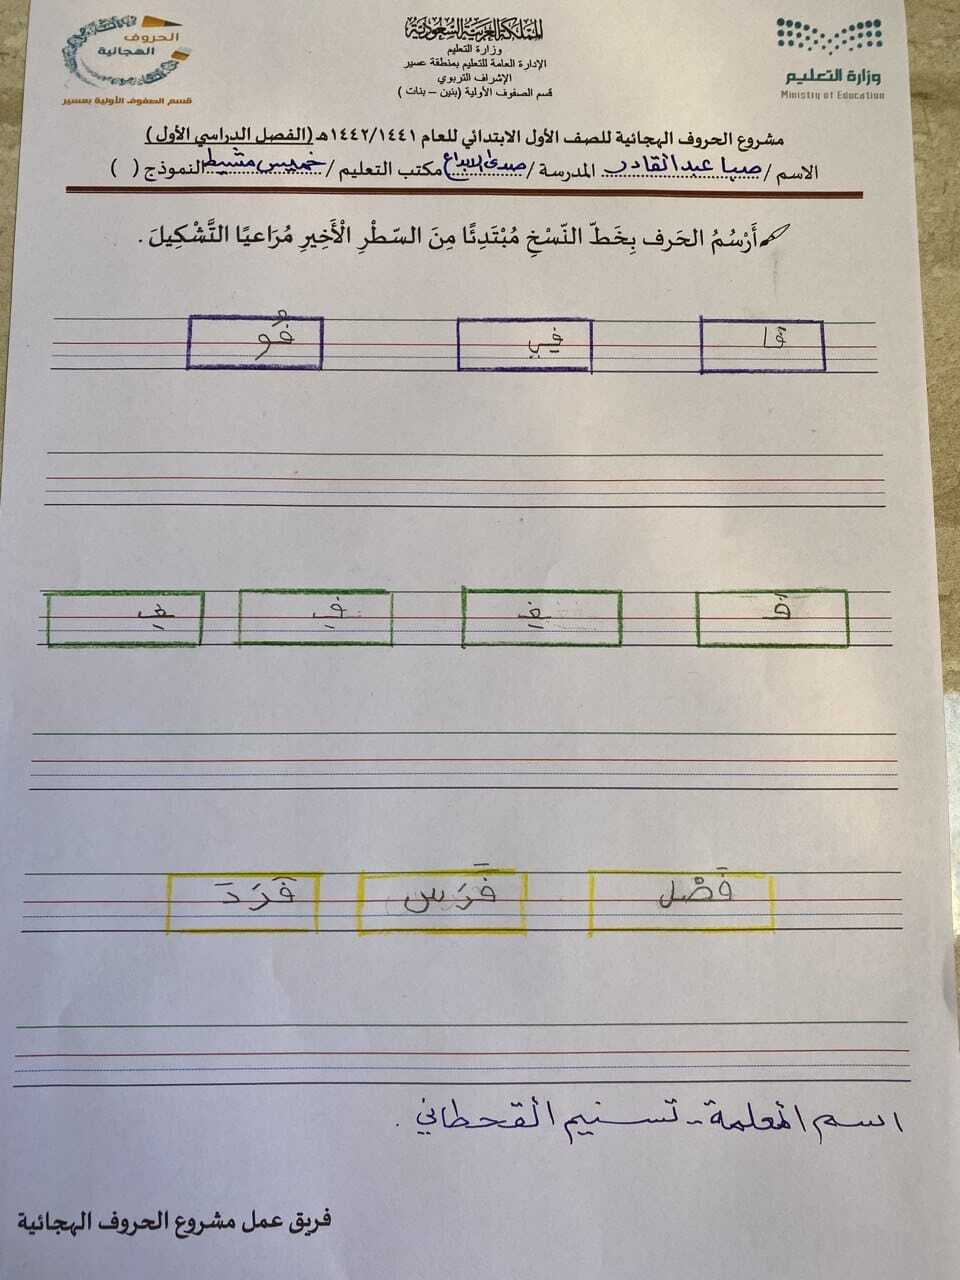 الحروف
الهجائية
قسم الصفوف الأولية بعسير
المملكة العربية السعودية
وزارة التعليم
الإدارة العامة للتعليم بمنطقة عسير
الإشراف التربوي
قسم الصفوف الأولية (بنين – بنات )
وزارة التعليم
Ministry of Education
مشروع الحروف الهجائية للصف الأول الابتدائي للعام ١٤٤٢/١٤٤١هـ (الفصل الدراسي الأول)
الاسم / صبا عبدالقادر المدرسة / صدى الابداع مكتب التعليم / خميس مشيط النموذج ( )
أَرْسُمُ الحَرف بِخَطّ النّسْخِ مُبْتَدِئًا مِنَ السّطْرِ الْأَخِيرِ مُرَاعيًا التَّشْكِيلَ .
فَا فِي فُو
فَ فِ فِ فِ
فَصْل فَرَس فَرَدَ
اسم المعلمة - تسنيم القحطاني .
فريق عمل مشروع الحروف الهجائية